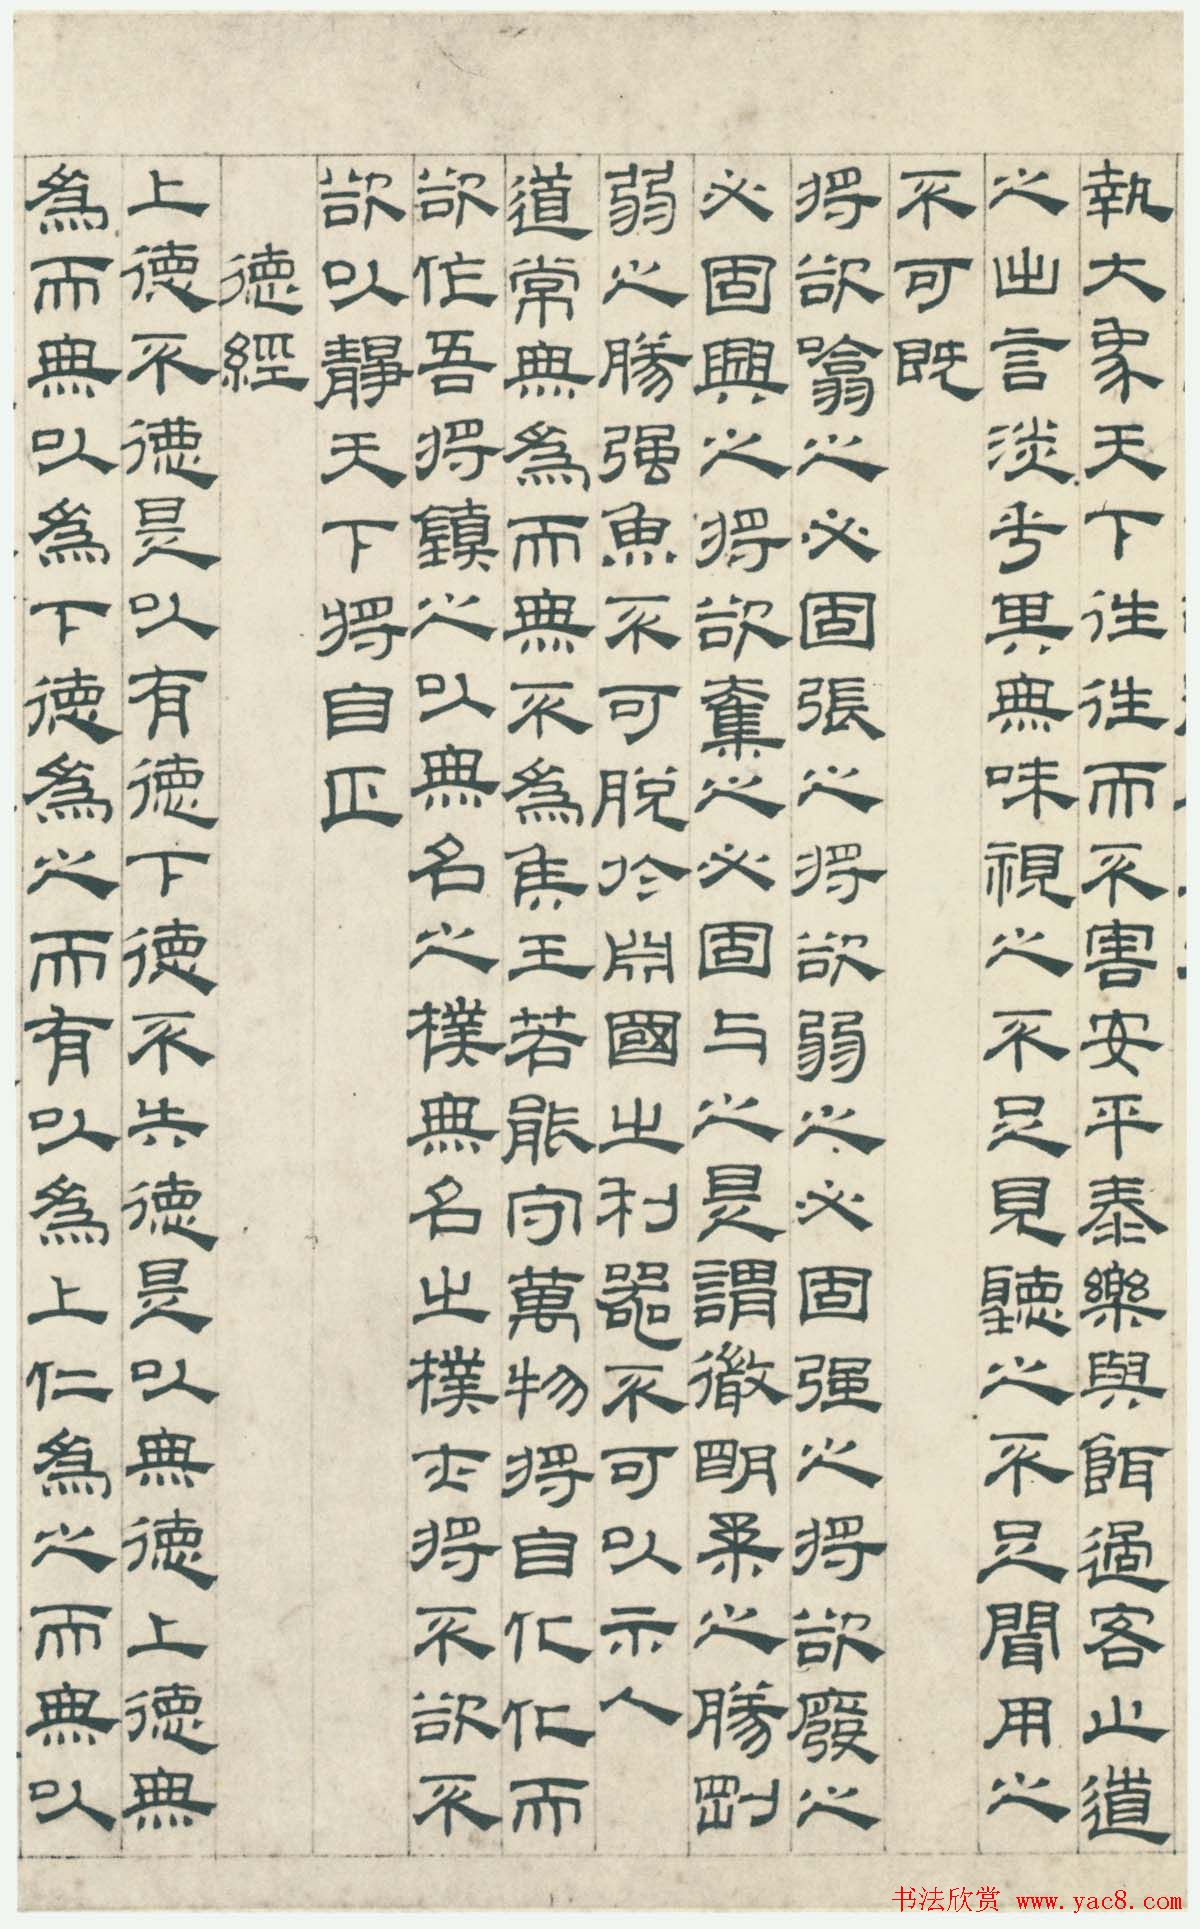 執大象天下往往而不害安平泰樂與餌過客止道
之出言淡乎其無味視之不足見聽之不足聞用之
不可既
將欲噏之必固張之將欲弱之必固强之將欲廢之
必固興之將欲奪之必固与之是謂微明柔之勝剛
弱之勝强魚不可脫於淵國之利器不可以示人
道常無爲而無不爲侯王若能守萬物將自化化而
欲作吾將鎮之以無名之樸無名之樸亦將不欲不
欲以靜天下將自正
德經
上德不德是以有德下德不失德是以無德上德無
爲而無以爲下德爲之而有以爲上仁爲之而無以
书法欣赏 www.yac8.com